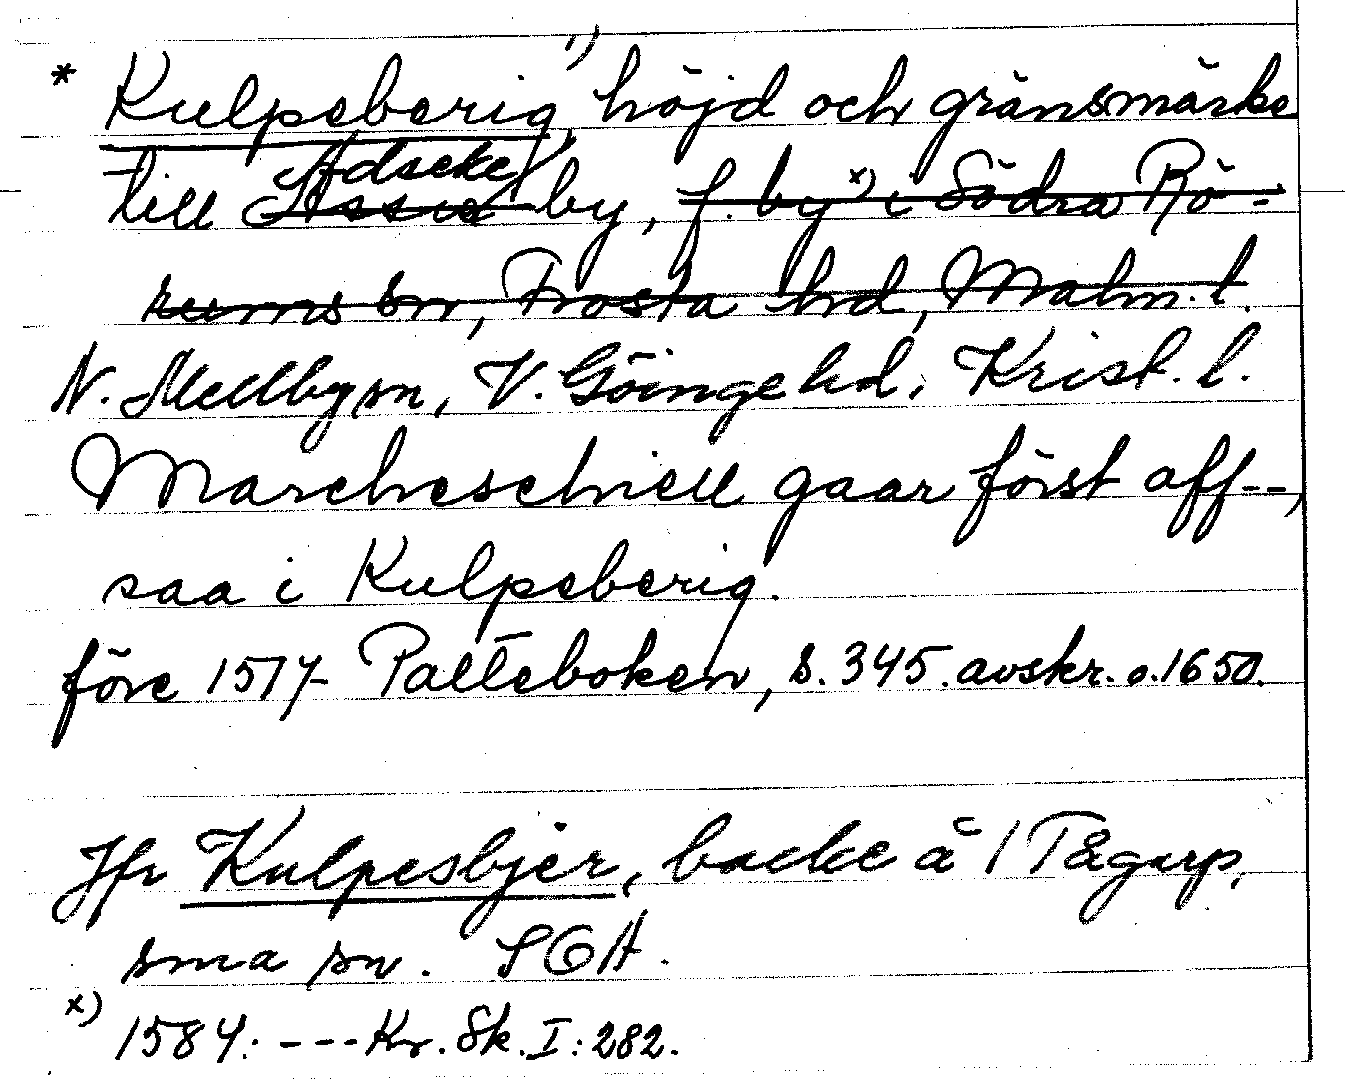 * Kulpeberig, ¹⁾ höjd och gränsmärke
till Adseke by, f. by ˣ⁾ i Södra Rö-
rums sn, Frosta hrd, Malm. l.
N. Mellby sn, V. Göinge hd, Krist. l.
Marcheschiell gaar först aff--,
saa i Kulpeberig.
före 1517 Palteboken, s. 345. avskr. o. 1650.
Jfr Kulpesbjer, backe å 1 Tågarp,
sma sn. SOA.
x) 1584: --- Kr. Sk. I: 282.